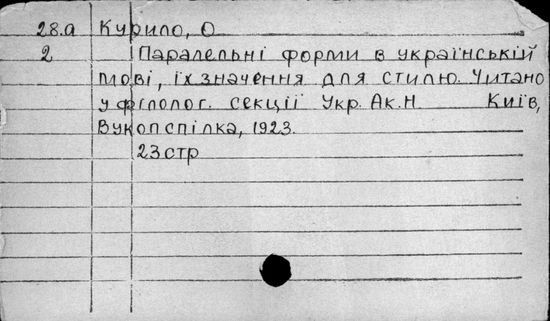 28.а Курило, О
2 Паралельні форми в українській
мові, їх значення для стилю. Читано
у філолог. секції Укр. Ак. Н. Київ,
Вукопспілка, 1923.
23 стр